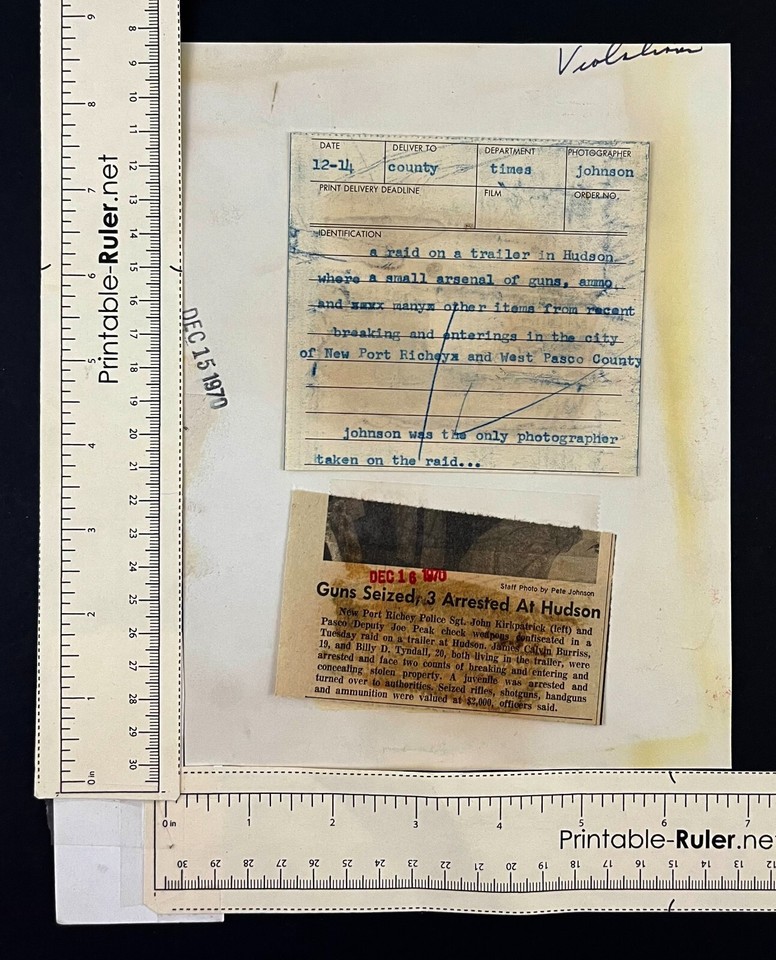 Violations
DATE DELIVER TO DEPARTMENT PHOTOGRAPHER
12-14 county times johnson
PRINT DELIVERY DEADLINE FILM ORDER NO.
IDENTIFICATION
a raid on a trailer in Hudson
where a small arsenal of guns, ammo,
and xxxx manyx other items from recent
breaking and enterings in the city
of New Port Richeyx and West Pasco County
johnson was the only photographer
taken on the raid...
DEC 15 1970
DEC 16 1970
Staff Photo by Pete Johnson
Guns Seized, 3 Arrested At Hudson
New Port Richey Police Sgt. John Kirkpatrick (left) and
Pasco Deputy Joe Peak check weapons confiscated in a
Tuesday raid on a trailer at Hudson. James Calvin Burriss,
19, and Billy D. Tyndall, 20, both living in the trailer, were
arrested and face two counts of breaking and entering and
concealing stolen property. A juvenile was arrested and
turned over to authorities. Seized rifles, shotguns, handguns
and ammunition were valued at $2,000, officers said.
Printable-Ruler.net
9
8
7
6
5
4
3
2
1
0 in
8
9
10
11
12
13
14
15
16
17
18
19
20
21
22
23
24
25
26
27
28
29
30
0 in 1 2 3 4 5 6 7
Printable-Ruler.ne
30 29 28 27 26 25 24 23 22 21 20 19 18 17 16 15 14 13 12